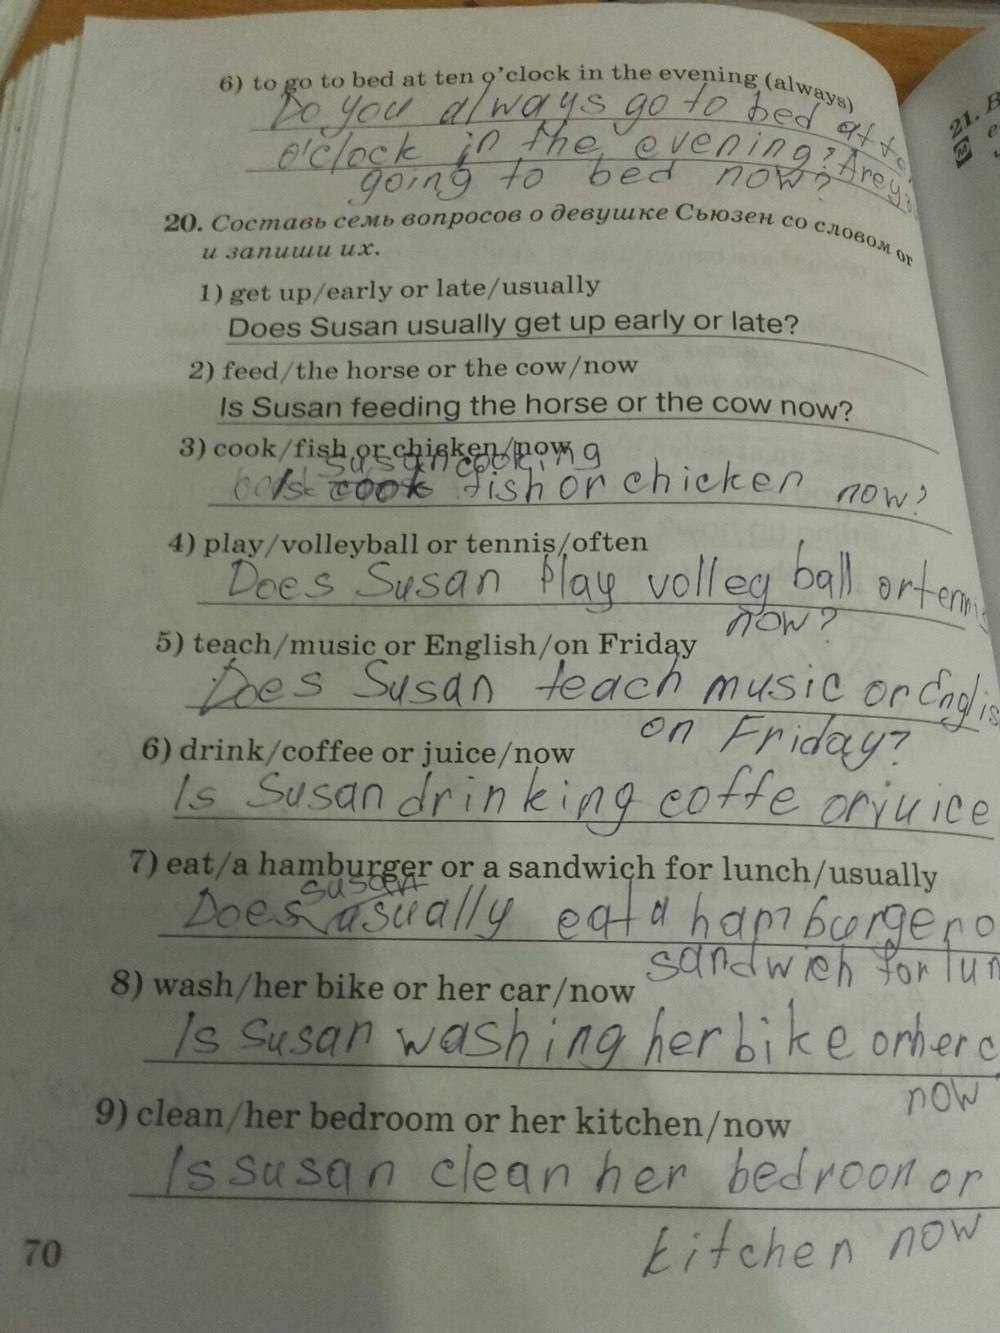 6) to go to bed at ten o'clock in the evening (always)
Do you always go to bed at te
o'clock in the evening? Are you
going to bed now?
20. Составь семь вопросов о девушке Сьюзен со словом or
и запиши их.
1) get up/early or late/usually
Does Susan usually get up early or late?
2) feed/the horse or the cow/now
Is Susan feeding the horse or the cow now?
3) cook/fish or chicken/now
Susan cooking
Is cook fish or chicken now?
4) play/volleyball or tennis/often
Does Susan play volleg ball or tennis
now?
5) teach/music or English/on Friday
Does Susan teach music or Englis
on Friday?
6) drink/coffee or juice/now
Is Susan drinking coffe or juice
7) eat/a hamburger or a sandwich for lunch/usually
susan
Does usually eat a hamburger o
sandwich for lun
8) wash/her bike or her car/now
Is Susan washing her bike or her c
now
9) clean/her bedroom or her kitchen/now
Is susan clean her bedroon or
kitchen now
70
21. В